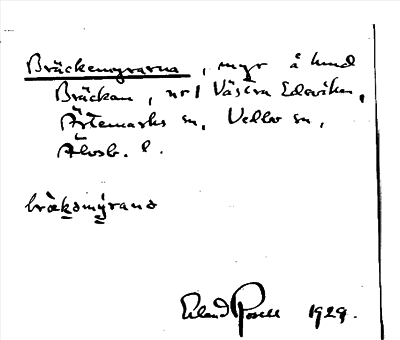 Bräckemyrarna, myr å hmd
Bräckan, nr 1 Västra Edsviken,
Ärtemarks sn, Vedbo sn,
Älvsb. l.
bräkəmýrana
Erland Rosell 1929.